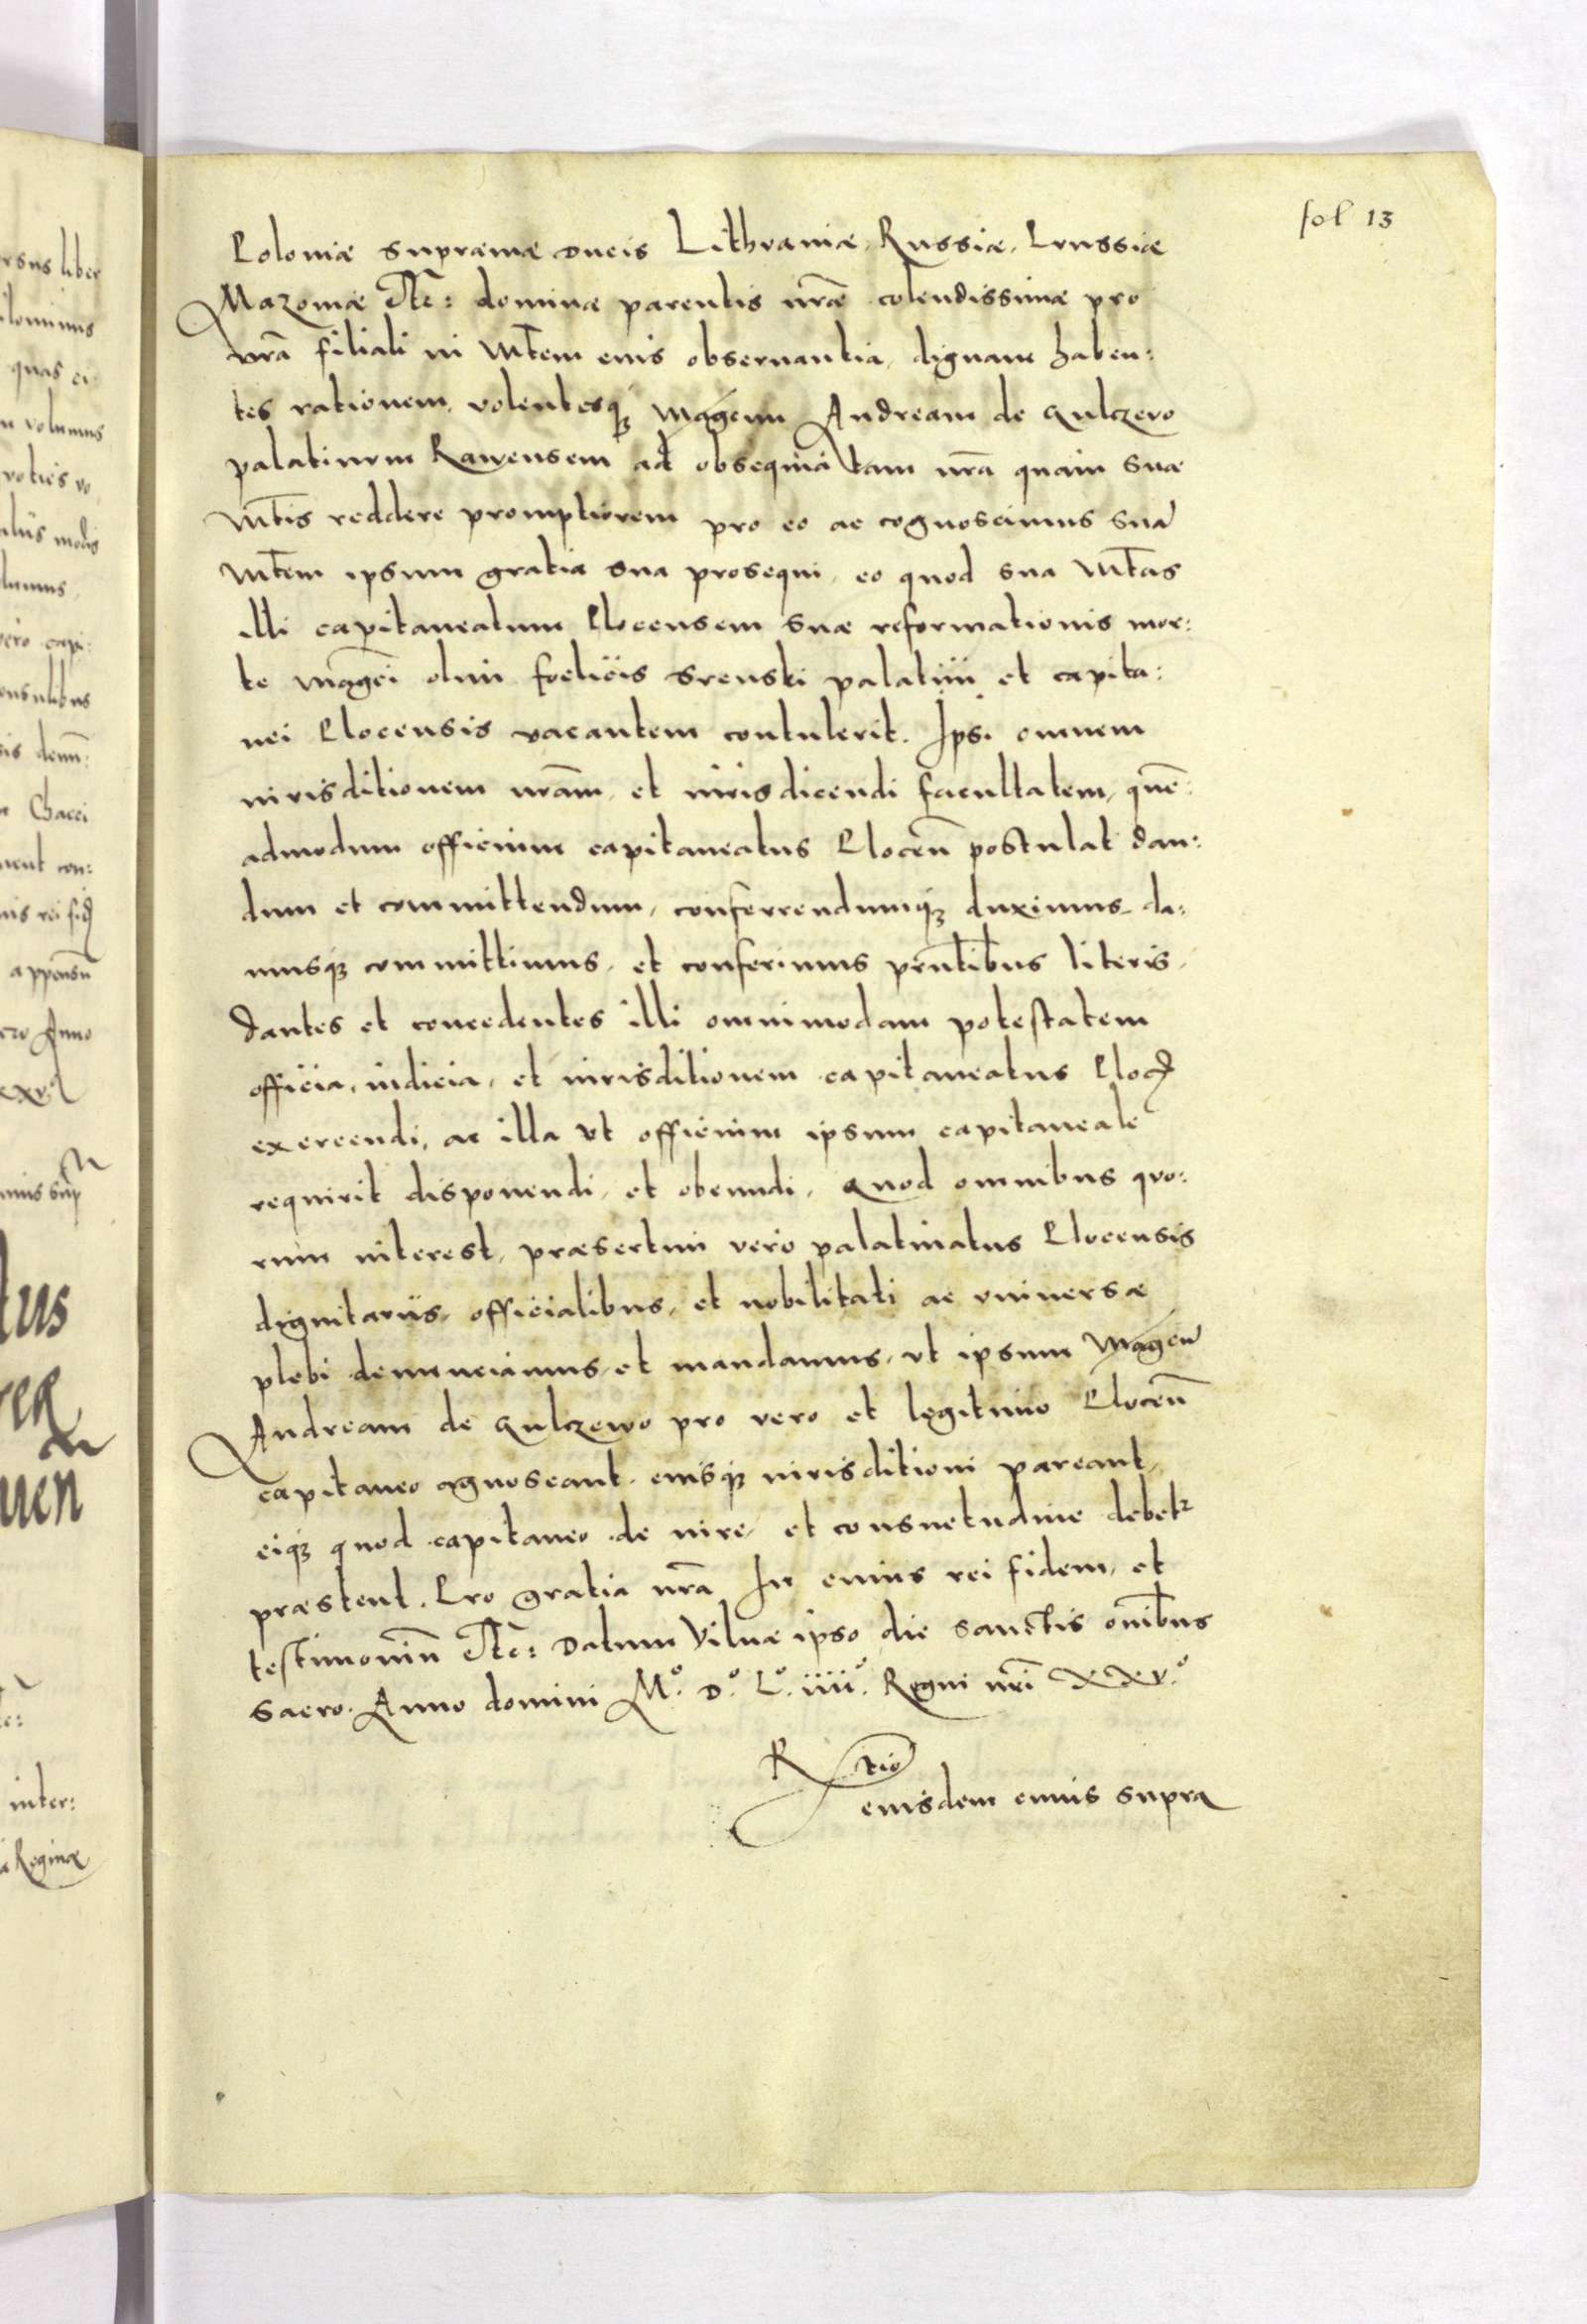 fol 13
Poloniæ supræmæ ducis Lithvaniæ, Russiæ, Prussiæ
Mazoviæ etc: dominæ parentis nr̃æ colendissimæ pro
nr̃a filiali in Mt̃em eius observantia, dignam haben:
tes rationem, volentesq₃ Mag̃cum Andream de Sulczevo
palatinum Ravensem ad obsequia tam nr̃a quam suæ
Mt̃is reddere promptiorem pro eo ac cognoscimus suã
Mt̃em ipsum gratia sua prosequi, eo quod sua Mt̃as
illi capitaneatum Plocensem suæ reformationis mor:
te mag̃ci olim foelicis Srenski palatini et capita:
nei Plocensis vacantem contulerit. Ipsi omnem
iurisditionem nr̃am, et iurisdicendi facultatem, quẽ:
admodum officium capitaneatus Plocen̄ postulat dan:
dum et committendum, conferrendumq₃ duximus da:
musq₃ committimus, et conferimus prñtibus literis,
dantes et concedentes illi omnimodam potestatem
officia, iudicia, et iurisditionem capitaneatus Ploc̃
exercendi, ac illa ut officium ipsum capitaneale
requirit disponendi, et obeundi, Quod omnibus quo:
rum interest, præsertim vero palatinatus Plocensis
dignitariis, officialibus, et nobilitati ac universæ
plebi denunciamus, et mandamus, ut ipsum Mag̃cũ
Andream de Sulczewo pro vero et legitimo Plocen̄
capitaneo agnoscant. eiusq₃ iurisditioni pareant,
eiq₃ quod capitaneo de iure, et consuetudine debetr
præstent. Pro gratia nr̃a In cuius rei fidem, et
testimoniũ etc: Datum Vilnæ ipso die Sanctis om̃ibus
sacro. Anno domini M.° D.° L.° iiii.° Regni nr̃i xxv.°
R tio
eiusdem cuius supra